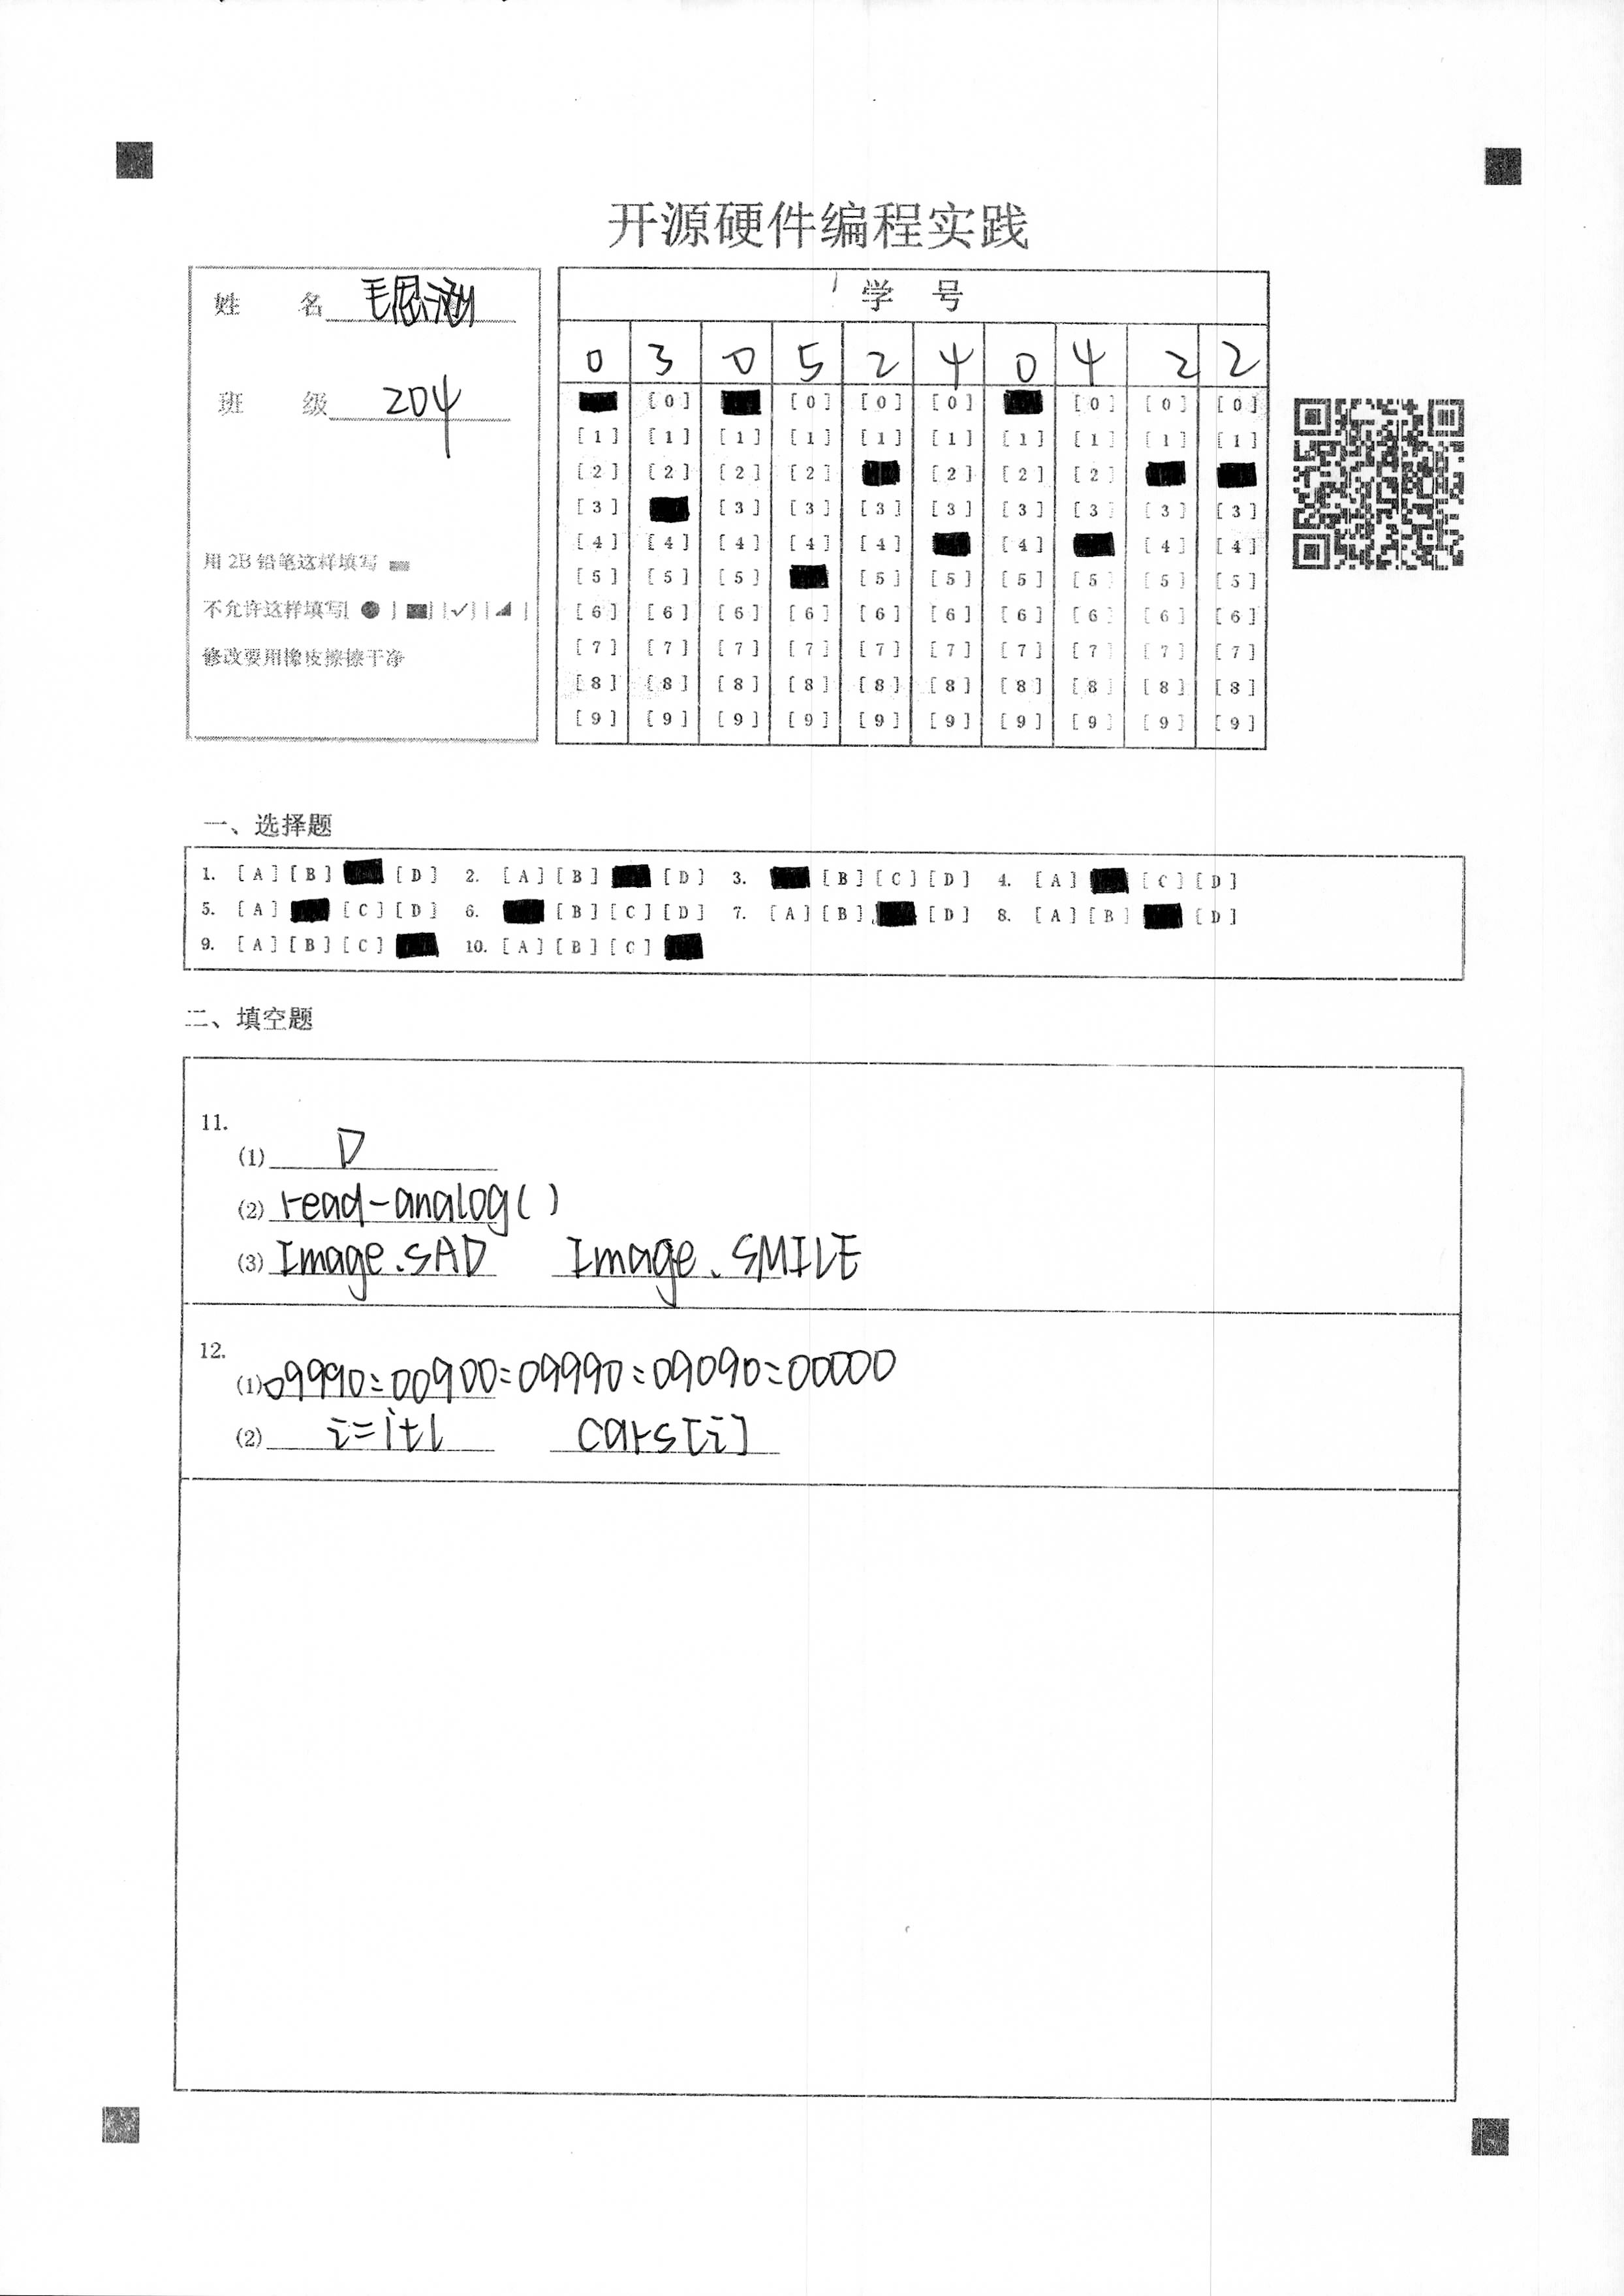 开源硬件编程实践
姓 名 毛思涵
班 级 204
用 2B 铅笔这样填写
不允许这样填写[ ● ] [■] [✓] [◢ ]
修改要用橡皮擦擦干净
学 号
0 3 0 5 2 4 0 4 2 2
[0] [0] [0] [0] [0] [0] [0]
[1] [1] [1] [1] [1] [1] [1] [1] [1] [1]
[2] [2] [2] [2] [2] [2] [2]
[3] [3] [3] [3] [3] [3] [3] [3] [3]
[4] [4] [4] [4] [4] [4] [4] [4]
[5] [5] [5] [5] [5] [5] [5] [5] [5]
[6] [6] [6] [6] [6] [6] [6] [6] [6] [6]
[7] [7] [7] [7] [7] [7] [7] [7] [7] [7]
[8] [8] [8] [8] [8] [8] [8] [8] [8] [8]
[9] [9] [9] [9] [9] [9] [9] [9] [9] [9]
一、选择题
1. [A] [B] [D] 2. [A] [B] [D] 3. [B] [C] [D] 4. [A] [C] [D]
5. [A] [C] [D] 6. [B] [C] [D] 7. [A] [B] [D] 8. [A] [B] [D]
9. [A] [B] [C] 10. [A] [B] [C]
二、填空题
11.
(1) D
(2) read-analog()
(3) Image.SAD Image.SMILE
12.
(1) 09990:00900:09990:09090:00000
(2) i=i+1 cars[i]